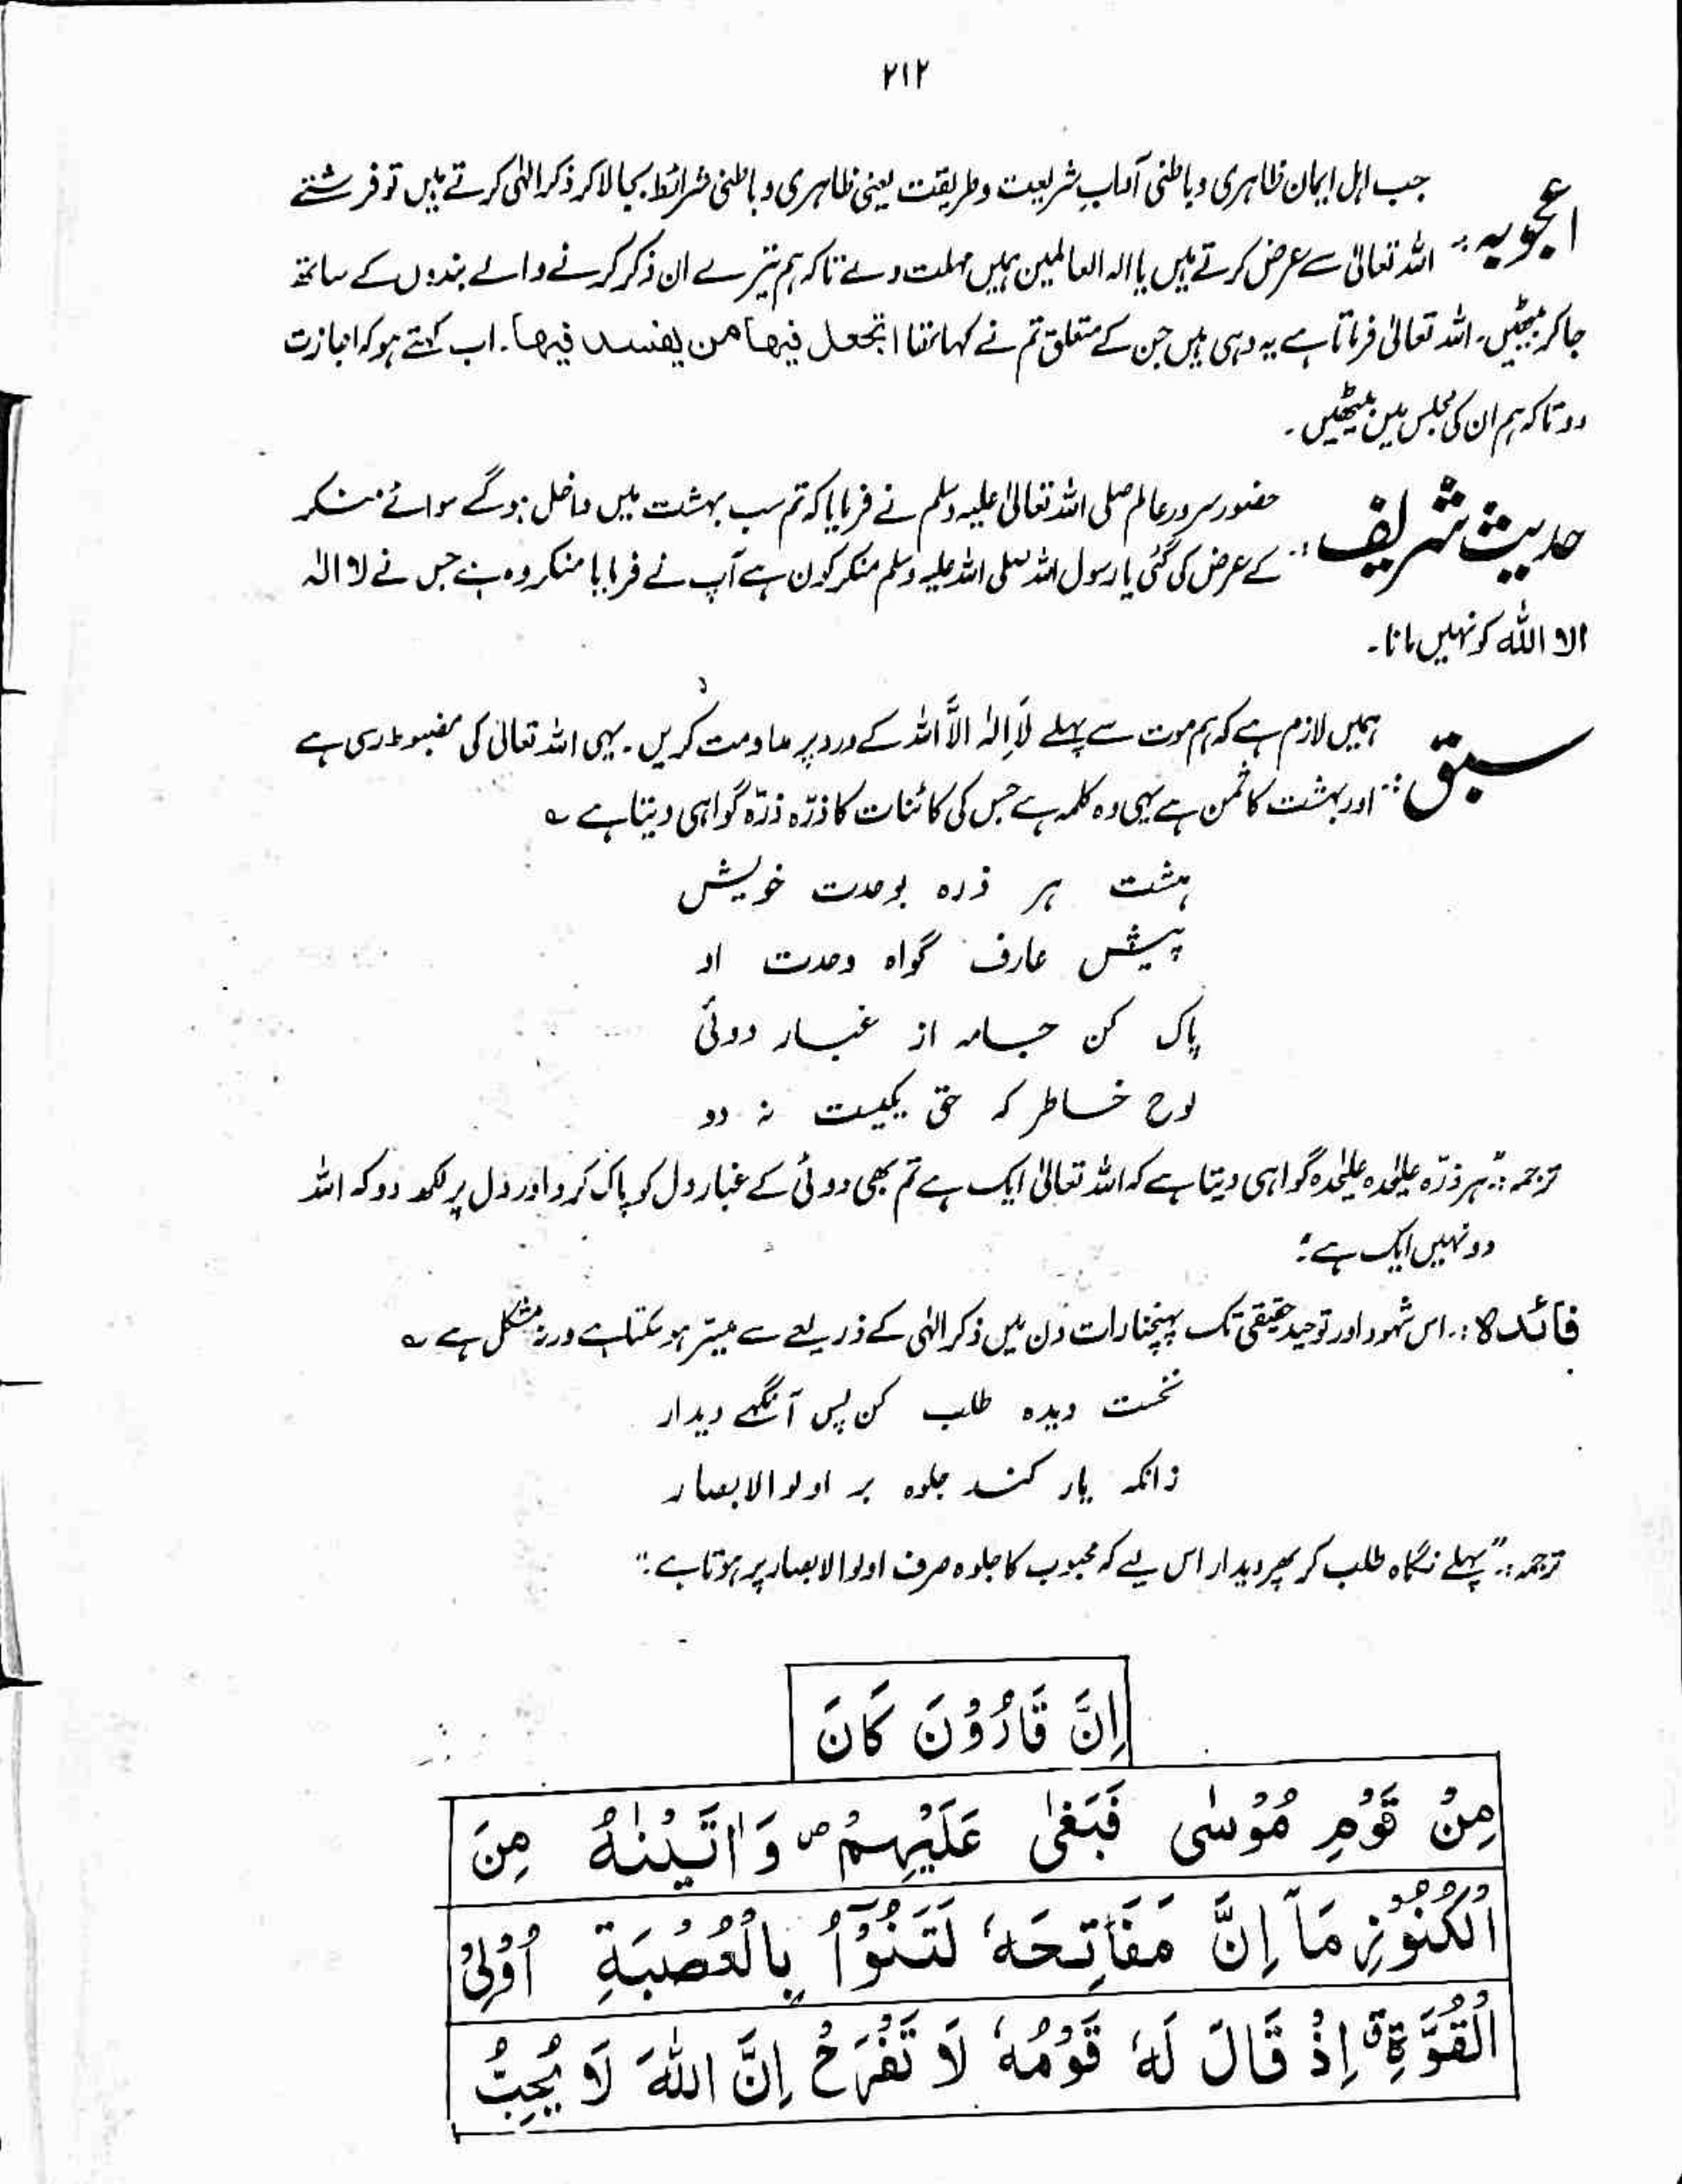 ۲۱۲
اعجوبہ :- جب اہل ایمان ظاہری و باطنی آدابِ شریعت و طریقت یعنی ظاہری و باطنی شرائط بجا لاکر ذکر الٰہی کرتے ہیں تو فرشتے
اللہ تعالیٰ سے عرض کرتے ہیں یا الہ العالمین ہمیں مہلت دے تاکہ ہم تیرے ان ذکر کرنے والے بندوں کے ساتھ
جاکر بیٹھیں۔ اللہ تعالیٰ فرماتا ہے یہ وہی ہیں جن کے متعلق تم نے کہا تھا اتجعل فیہا من یفسد فیہا۔ اب کہتے ہو کہ اجازت
دو تاکہ ہم ان کی مجلس میں بیٹھیں۔
حدیث شریف :- حضور سرور عالم صلی اللہ تعالیٰ علیہ وسلم نے فرمایا کہ تم سب بہشت میں داخل ہوگے سوائے منکر
کے عرض کی گئی یا رسول اللہ صلی اللہ علیہ وسلم منکر کون ہے آپ نے فرمایا منکر وہ ہے جس نے لا الٰہ
الا اللہ کو نہیں مانا۔
سبق :- ہمیں لازم ہے کہ ہم موت سے پہلے لَا اِلٰہ الَّا اللہ کے ورد پر مداومت کریں۔ یہی اللہ تعالیٰ کی مضبوط رسی ہے
اور بہشت کا ثمن ہے یہی وہ کلمہ ہے جس کی کائنات کا ذرّہ ذرّہ گواہی دیتا ہے ؎
ہشت ہر ذرہ بوحدت خویش
پیش عارف گواہ وحدت او
پاک کن جامہ از غبار دوئی
لوح خاطر کہ حق یکیست نہ دو
ترجمہ :- "ہر ذرّہ علیٰحدہ علیٰحدہ گواہی دیتا ہے کہ اللہ تعالیٰ ایک ہے تم بھی دوئی کے غبار دل کو پاک کرو اور دل پر لکھ دو کہ اللہ
دو نہیں ایک ہے"
فائدہ :- اس شہود اور توحید حقیقی تک پہنچنا رات دن میں ذکر الٰہی کے ذریعے سے میسّر ہوسکتا ہے ورنہ مشکل ہے ؎
نخست دیدہ طلب کن پس آنگہے دیدار
زانکہ یار کند جلوہ بر اولو الابصار
ترجمہ :- "پہلے نگاہ طلب کر پھر دیدار اس لیے کہ محبوب کا جلوہ صرف اولو الابصار پر ہوتا ہے"
اِنَّ قَارُوْنَ کَانَ
مِنْ قَوْمِ مُوْسٰی فَبَغٰی عَلَیْہِمْ ص وَاٰتَیْنٰہُ مِنَ
الْکُنُوْزِ مَآ اِنَّ مَفَاتِحَہٗ لَتَنُوْٓاُ بِالْعُصْبَۃِ اُوْلِی
الْقُوَّۃِ ق اِذْ قَالَ لَہٗ قَوْمُہٗ لَا تَفْرَحْ اِنَّ اللّٰہَ لَا یُحِبُّ